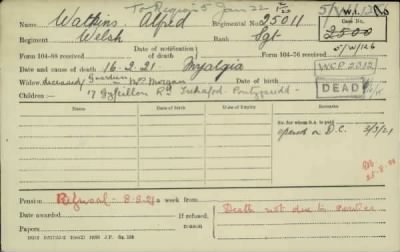 To Region 5 Jan 22
Name, Watkins, Alfred Regimental No. 25011
Regiment Welsh Rank Sgt Case No. 2800
Form 104-88 received Date of notification of death Form 104-76 received 5/W/126
Date and cause of death 16.2.21. Myalgia W.C.P. 2312
Widow, deceased Guardian Mrs Morgan
Children:— 17 Rd Trehafod. Pontypridd DEAD
Name Date of Birth Date of Expiry Name Date of Birth Remarks
For whom D.C. is paid
opened on D.C. 3/3/21
Pension Refusal - 8-8-21 a week from
Date awarded If refused, reason
Death not due to service